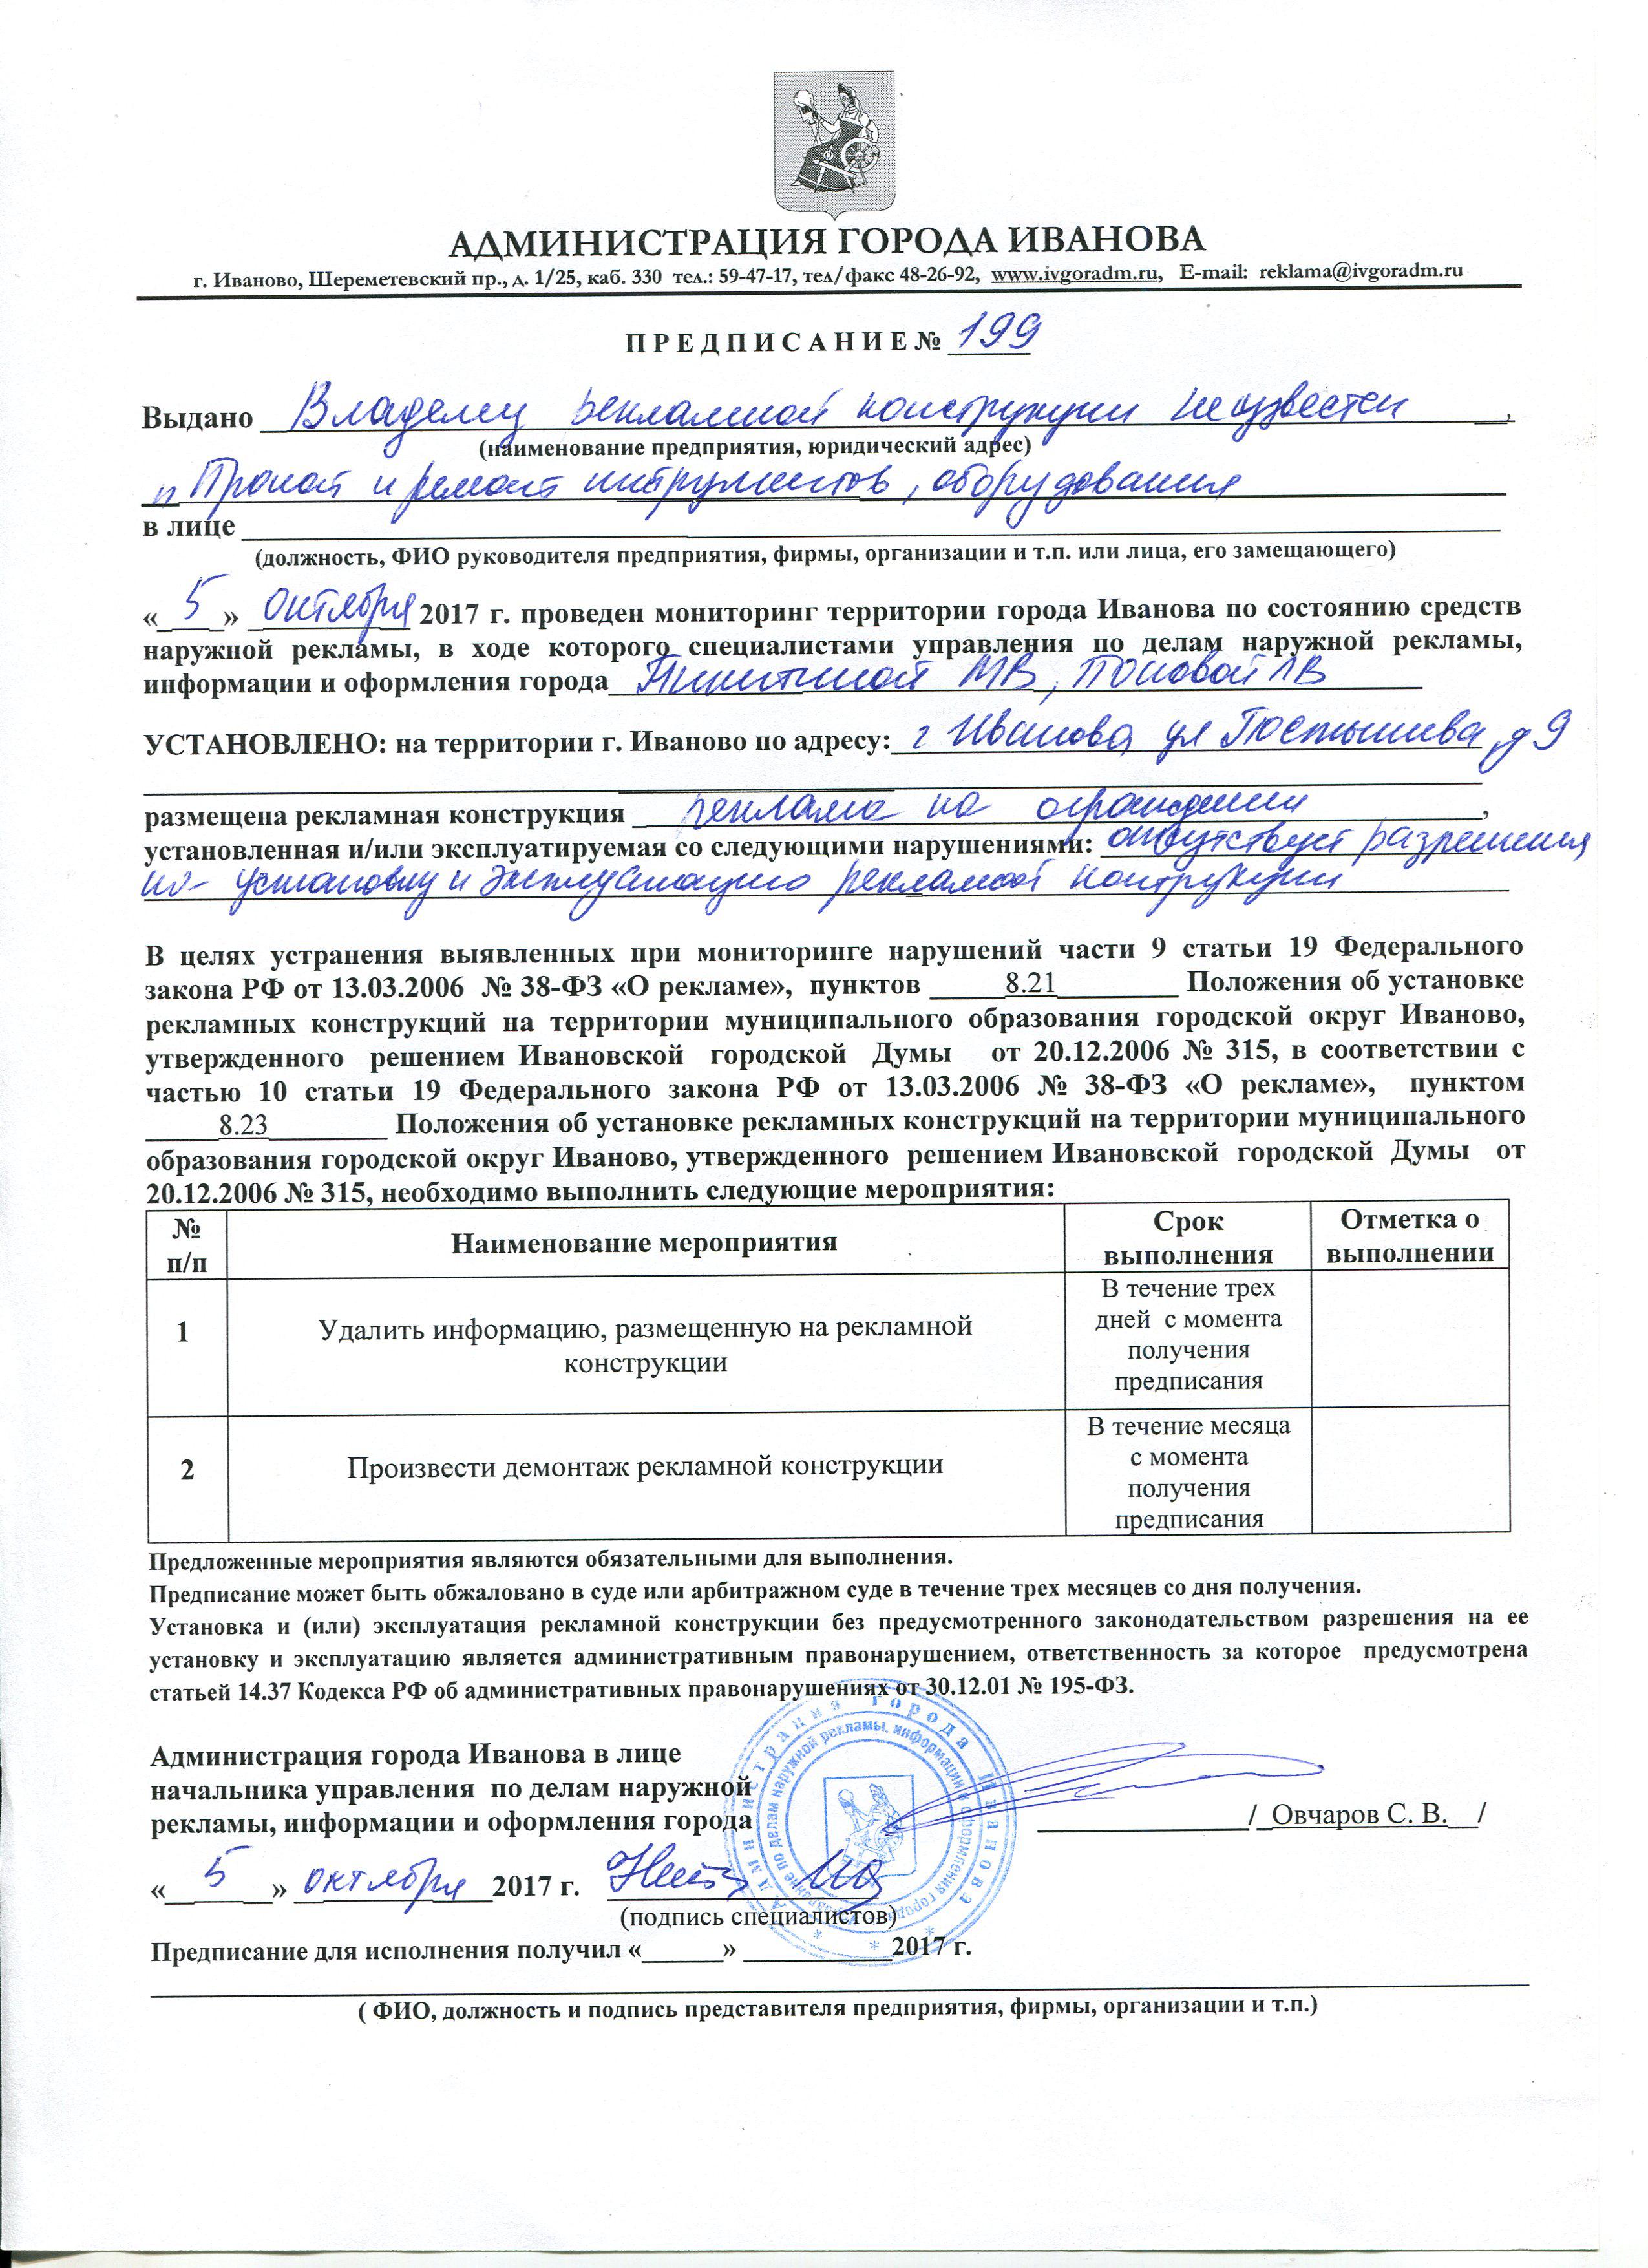 АДМИНИСТРАЦИЯ ГОРОДА ИВАНОВА
г. Иваново, Шереметевский пр., д. 1/25, каб. 330 тел.: 59-47-17, тел/факс 48-26-92, www.ivgoradm.ru, E-mail: reklama@ivgoradm.ru
ПРЕДПИСАНИЕ № 199
Выдано Владелец рекламной конструкции неизвестен,
(наименование предприятия, юридический адрес)
"Прокат и ремонт интрументов, оборудования
в лице
(должность, ФИО руководителя предприятия, фирмы, организации и т.п. или лица, его замещающего)
«5» октября 2017 г. проведен мониторинг территории города Иванова по состоянию средств
наружной рекламы, в ходе которого специалистами управления по делам наружной рекламы,
информации и оформления города Никитиной МВ, Поповой ЛВ
УСТАНОВЛЕНО: на территории г. Иваново по адресу: г Иванова, ул Постышева, д 9
размещена рекламная конструкция реклама на ограждении,
установленная и/или эксплуатируемая со следующими нарушениями: отсутствует разрешения
на установку и эксплуатацию рекламой контрукции
В целях устранения выявленных при мониторинге нарушений части 9 статьи 19 Федерального
закона РФ от 13.03.2006 № 38-ФЗ «О рекламе», пунктов 8.21 Положения об установке
рекламных конструкций на территории муниципального образования городской округ Иваново,
утвержденного решением Ивановской городской Думы от 20.12.2006 № 315, в соответствии с
частью 10 статьи 19 Федерального закона РФ от 13.03.2006 № 38-ФЗ «О рекламе», пунктом
8.23 Положения об установке рекламных конструкций на территории муниципального
образования городской округ Иваново, утвержденного решением Ивановской городской Думы от
20.12.2006 № 315, необходимо выполнить следующие мероприятия:
№ п/п Наименование мероприятия Срок выполнения Отметка о выполнении
1 Удалить информацию, размещенную на рекламной конструкции В течение трех дней с момента получения предписания
2 Произвести демонтаж рекламной конструкции В течение месяца с момента получения предписания
Предложенные мероприятия являются обязательными для выполнения.
Предписание может быть обжаловано в суде или арбитражном суде в течение трех месяцев со дня получения.
Установка и (или) эксплуатация рекламной конструкции без предусмотренного законодательством разрешения на ее
установку и эксплуатацию является административным правонарушением, ответственность за которое предусмотрена
статьей 14.37 Кодекса РФ об административных правонарушениях от 30.12.01 № 195-ФЗ.
Администрация города Иванова в лице
начальника управления по делам наружной
рекламы, информации и оформления города / Овчаров С. В. /
«5» октября 2017 г.
(подпись специалистов)
Предписание для исполнения получил «» 2017 г.
( ФИО, должность и подпись представителя предприятия, фирмы, организации и т.п.)
Администрация города Иванова
Управление по делам наружной рекламы, информации и оформления города